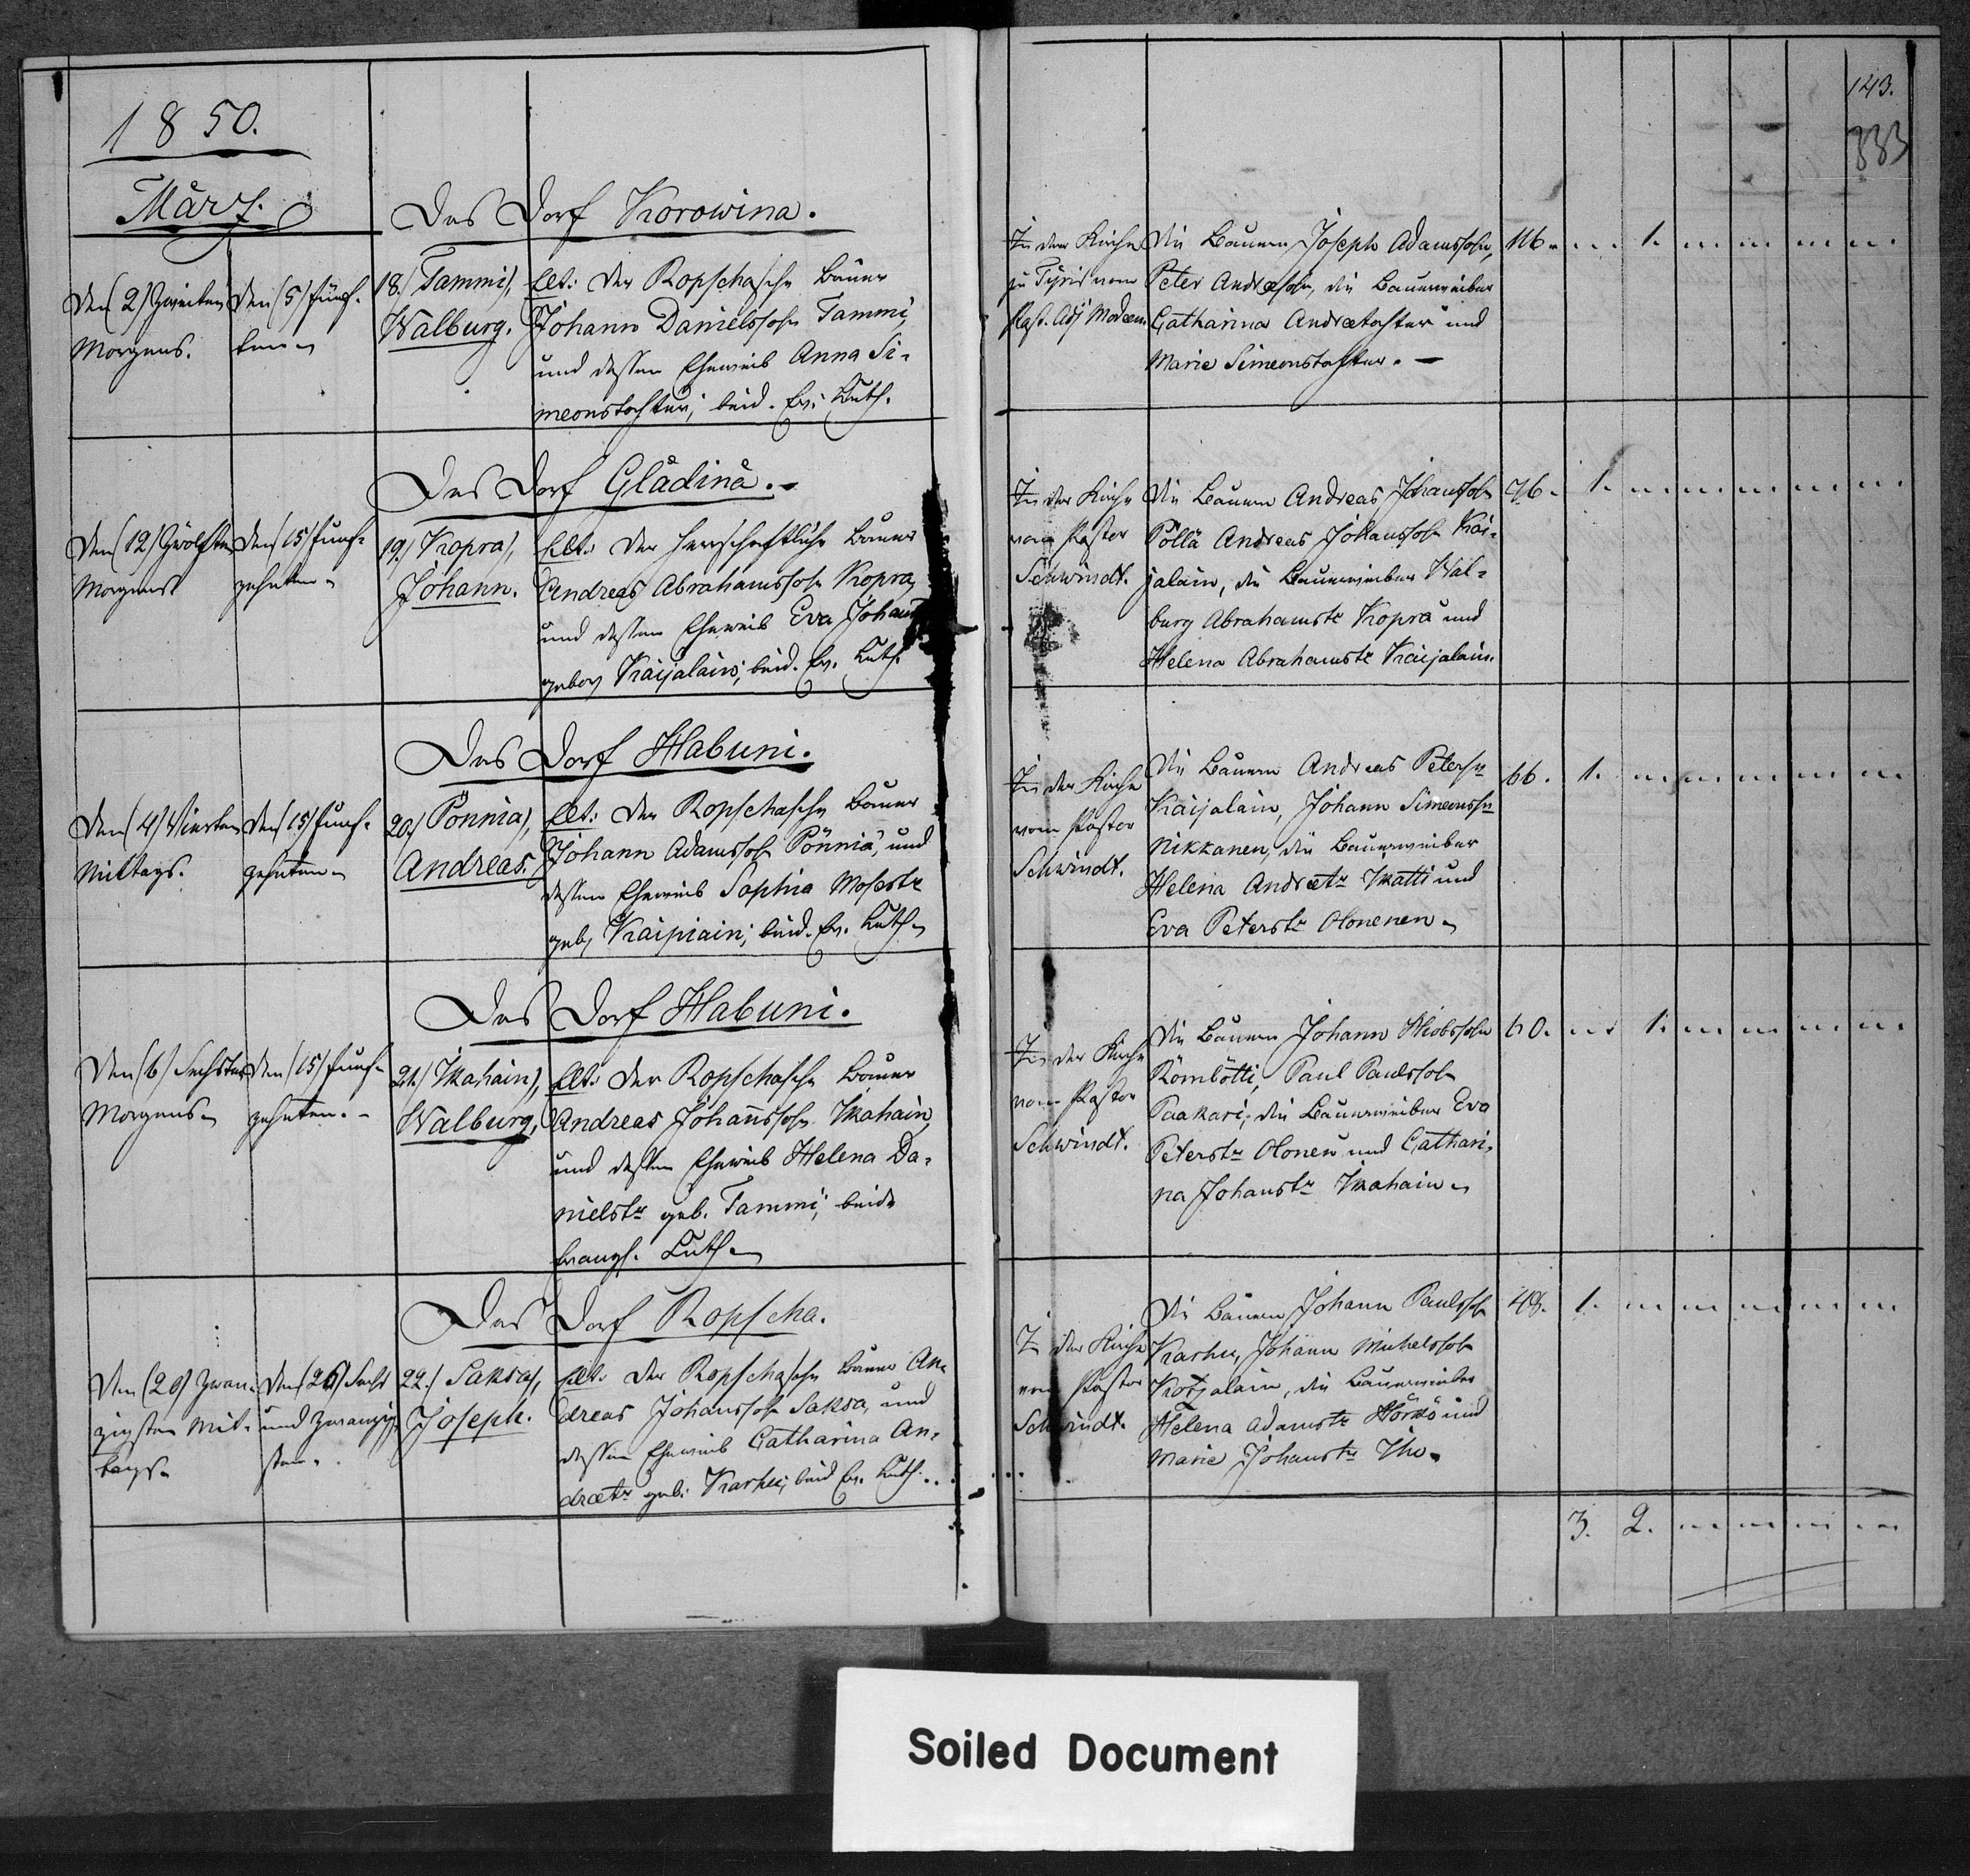 1850.
143.
333
März.
Das Dorf Korowina.
Den (2) Zweiten
Morgens.
Den (5) Fünf-
ten
18.) Tammi),
Walburg.
Elt: Der Ropschasche Bauer
Johann Danielssohn Tammi,
und dessen Eheweib Anna Si-
meonstochter; beid. Ev: Luth.
In der Kirche
zu Tyris vom
Past. Adj
Die Bauern Joseph Adamssohn,
Peter Andræsohn, die Bauerweiber
Catharina Andrætochter und
Marie Simeonstochter.
1.
Das Dorf Glädinä.
Den (12) Zwölften
Morgens
Den (15) Funf-
zehnten
19.) Kopra),
Johann.
Elt: Der herrschaftliche Bauer
Andreas Abrahamssohn Kopra,
und dessen Eheweib Eva Johans
gebor Kaijalain; beid. Ev. Luth.
In der Kirche
vom Pastor
Schwindt.
Die Bauern Andreas Johanssohn
Pöllä Andreas Johanssohn Kai-
jalain, die Bauerweiber Wal-
burg Abrahamstr Kopra und
Helena Abrahamstr Kaijalain.
76.
1.
Das Dorf Habuni.
Den (4) Vierten
Mittags.
Den (15) Funf-
zehnten
20.) Pönniä),
Andreas.
Elt: Der Ropschasche Bauer
Johann Adamssohn Pönniä, und
dessen Eheweib Sophia Mosestr
geb. Kaipiain; beid. Ev. Luth.
In der Kirche
vom Pastor
Schwindt.
Die Bauern Andreas Petersn
Kaijalain, Johann Simeonssn
Nikkanen, die Bauerweiber
Helena Andrætr Ikatti und
Eva Peterstr Olonenen
66.
1.
Das Dorf Habuni.
Den (6) Sechsten
Morgens
Den (15) Funf-
zehnten.
21.) Ikahain),
Walburg,
Elt: Der Ropschasche Bauer
Andreas Johannssohn Ikahain,
und dessen Eheweib Helena Da-
nielstr geb. Tammi; beide
Evangl. Luth.
In der Kirche
vom Pastor
Schwindt.
Die Bauern Johann Hiobssohn
Römbötti, Paul Paulssohn
Paakari; die Bauerweiber Eva
Peterstr Olonen und Cathari-
na Johanstr Ikahain
60.
1.
Das Dorf Ropscha.
Den (20) Zwan-
zigsten Mit-
tags
Den (26) Sechs
und Zwanzig-
sten.
22.) Saksa),
Joseph.
Elt. Der Ropschasche Bauer An-
dreas Johanssohn Saksa, und
dessen Eheweib Catharina An-
drætr geb. Karhu; beid Ev. Luth.
In der Kirche
vom Pastor
Schwindt.
Die Bauern Johann Paulssohn
Karhu, Johann Michelssohn
Kotjalain, die Bauerweiber
Helena Adamstr Hörkö und
Marie Johanstr Iho.
48.
1.
3. 2.
Soiled Document